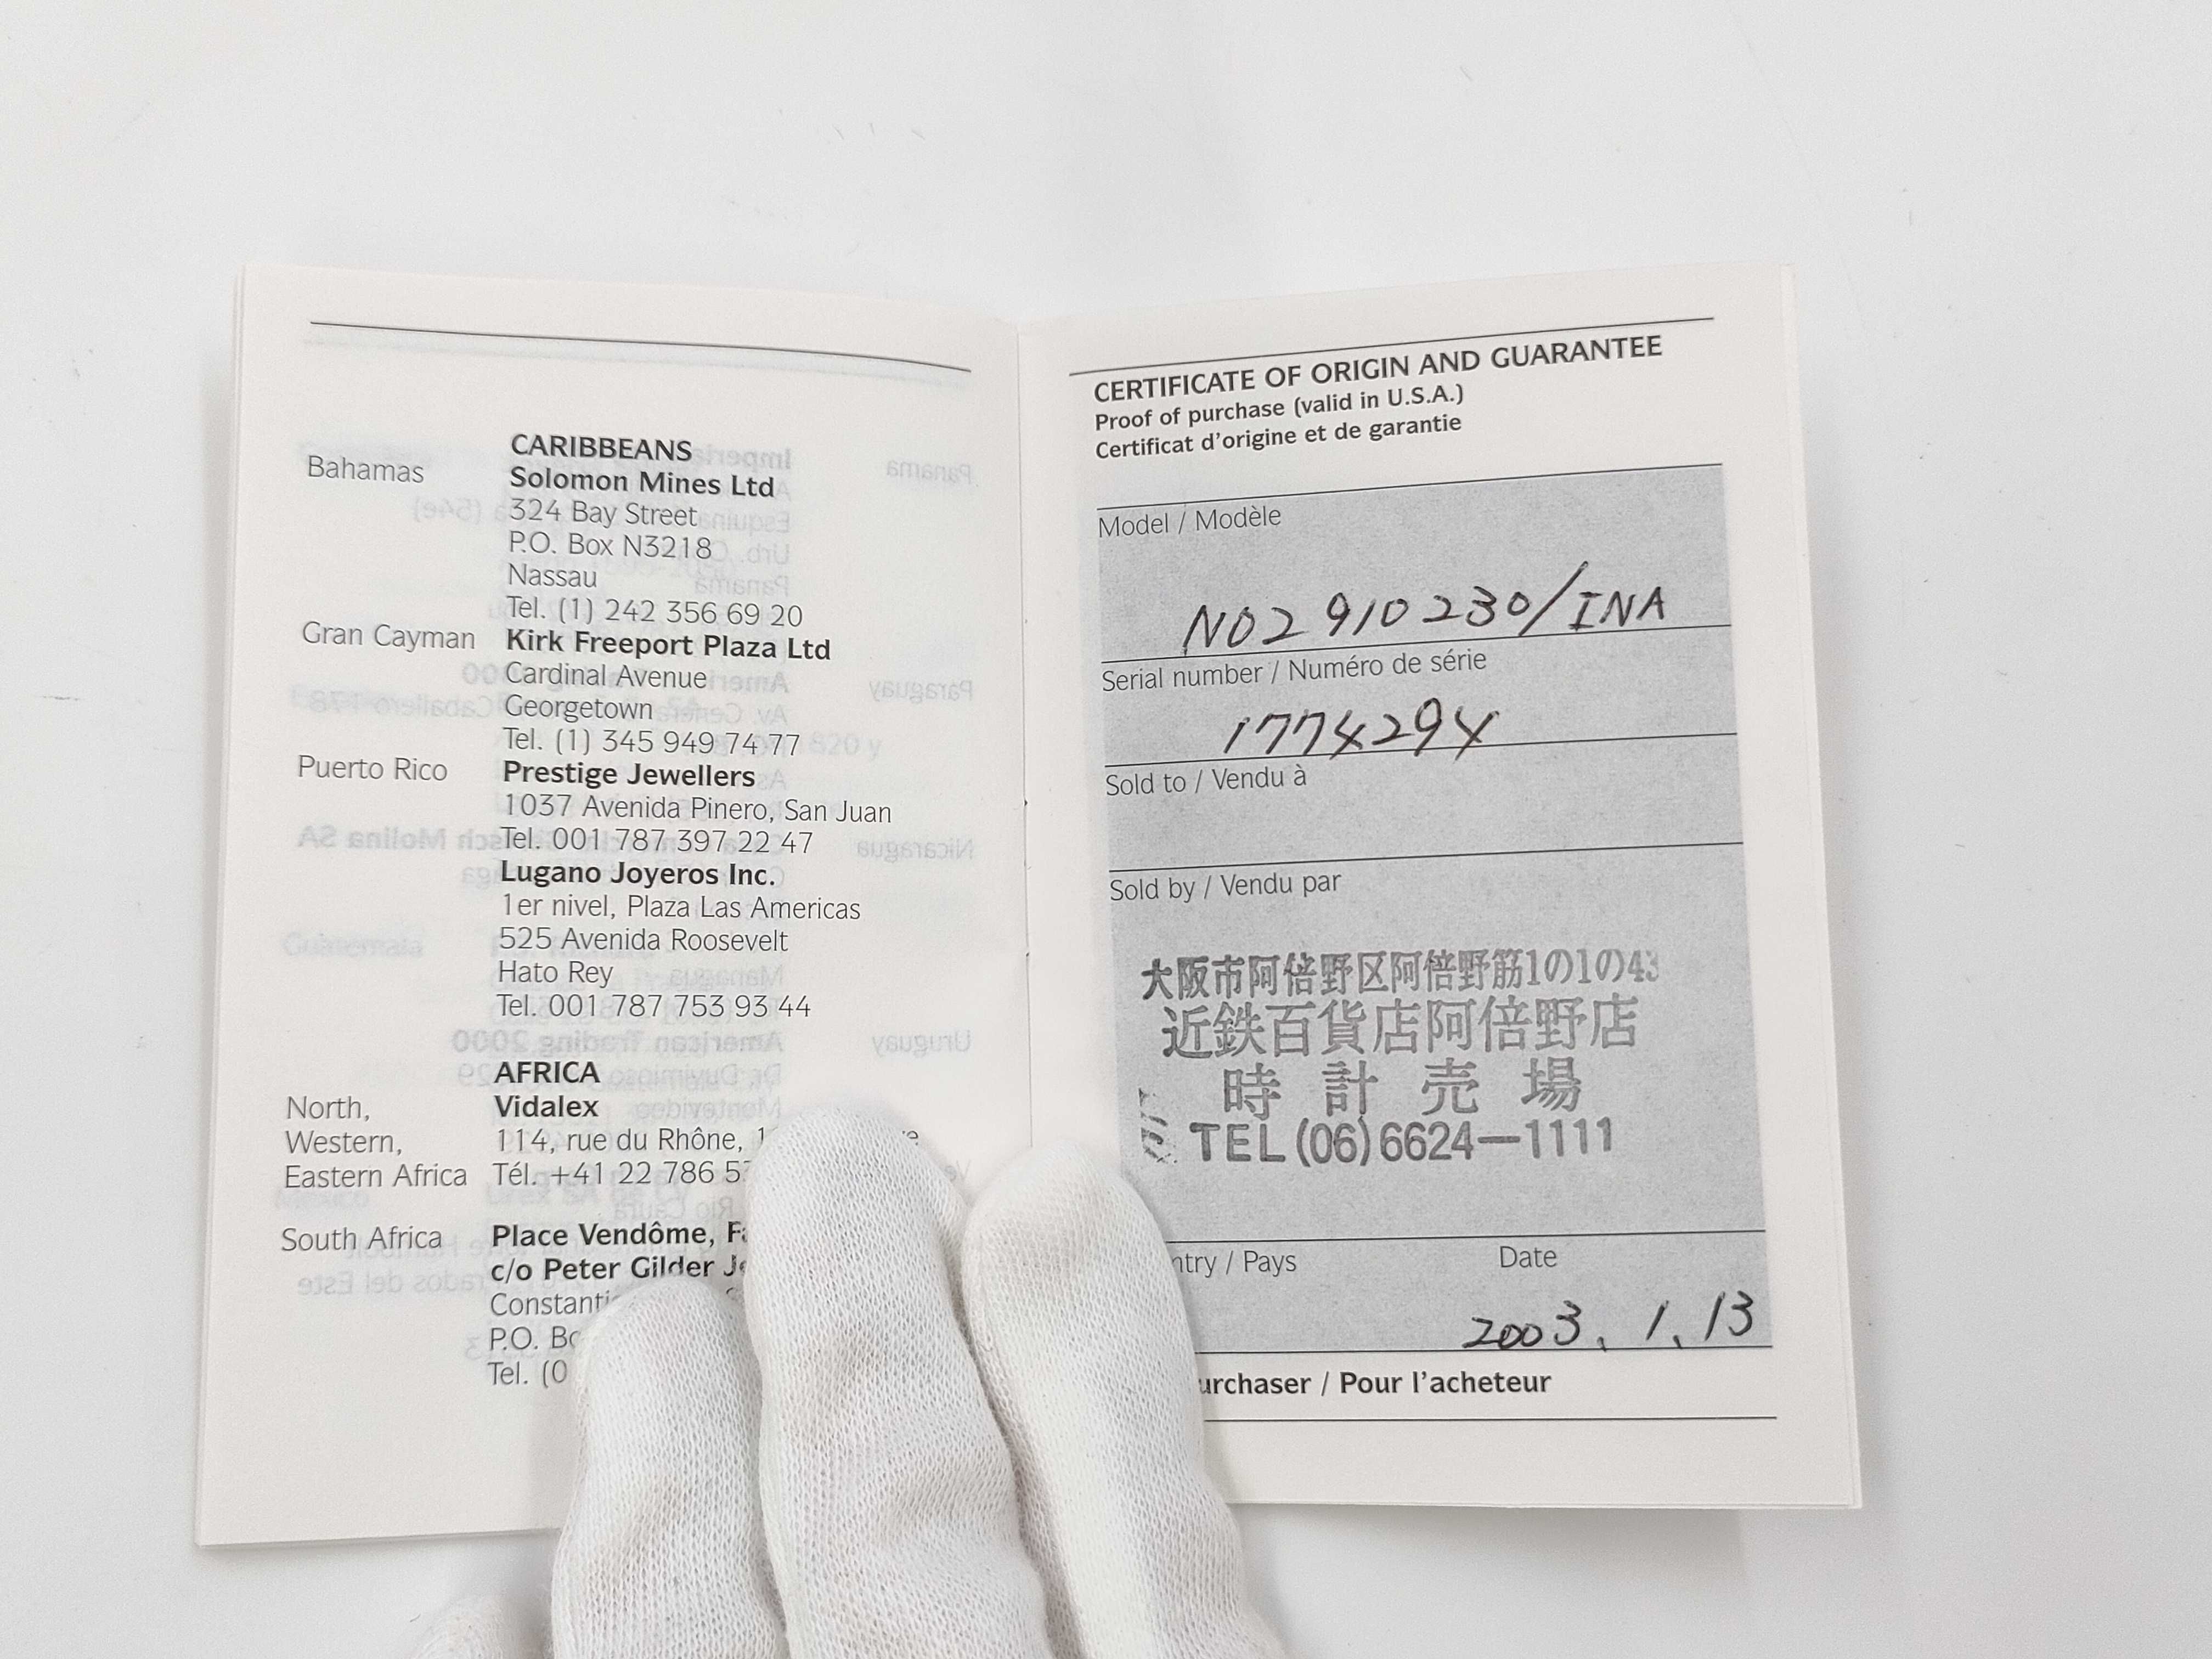 CARIBBEANS
Bahamas Solomon Mines Ltd
324 Bay Street
P.O. Box N3218
Nassau
Tel. (1) 242 356 69 20
Gran Cayman Kirk Freeport Plaza Ltd
Cardinal Avenue
Georgetown
Tel. (1) 345 949 74 77
Puerto Rico Prestige Jewellers
1037 Avenida Pinero, San Juan
Tel. 001 787 397 22 47
Lugano Joyeros Inc.
1er nivel, Plaza Las Americas
525 Avenida Roosevelt
Hato Rey
Tel. 001 787 753 93 44
AFRICA
North, Vidalex
Western, 114, rue du Rhône,
Eastern Africa Tél. +41 22 786
South Africa Place Vendôme,
c/o Peter Gilder
P.O.
Tel. (0
CERTIFICATE OF ORIGIN AND GUARANTEE
Proof of purchase (valid in U.S.A.)
Certificat d'origine et de garantie
Model / Modèle
N02910230/INA
Serial number / Numéro de série
1774294
Sold to / Vendu à
Sold by / Vendu par
大阪市阿倍野区阿倍野筋1の1の43
近鉄百貨店阿倍野店
時計売場
TEL (06) 6624-1111
/ Pays Date
2003. 1. 13
/ Pour l'acheteur